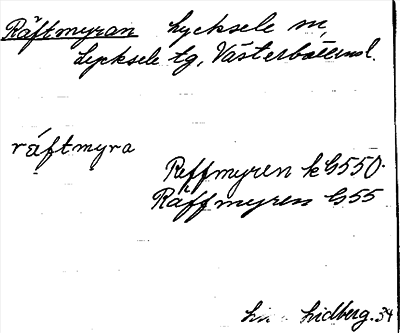 Räftmyran Lycksele sn,
Lycksele tg, Västerbottensl.
råftmyra
Räffmyren k G550
Räffmyren G55
Lidberg. 34